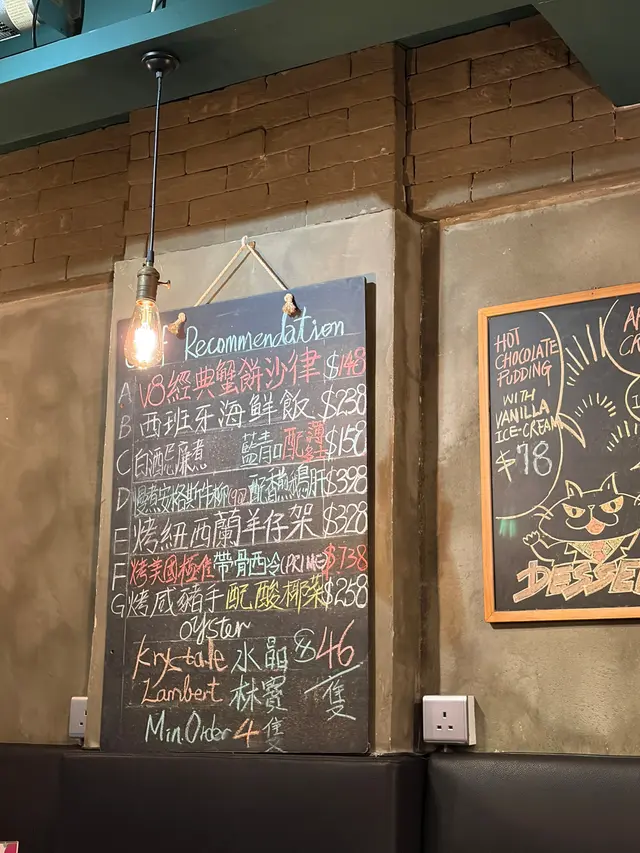 Recommendation
A V8經典蟹餅沙律 $148
B 西班牙海鮮飯 $238
C 白酒忌廉煮 藍青口配薄多士 $158
D 慢煮安格斯牛柳(9oz)配香煎鵝肝 $398
E 烤紐西蘭羊仔架 $328
F 烤美國極佳帶骨西冷(PRIME) $738
G 烤咸豬手配酸椰菜 $258
oyster
Krystale 水晶 $46
Lambert 林寶 /隻
Min.Order 4隻
HOT
CHOCOLATE
PUDDING
WITH
VANILLA
ICE-CREAM
$78